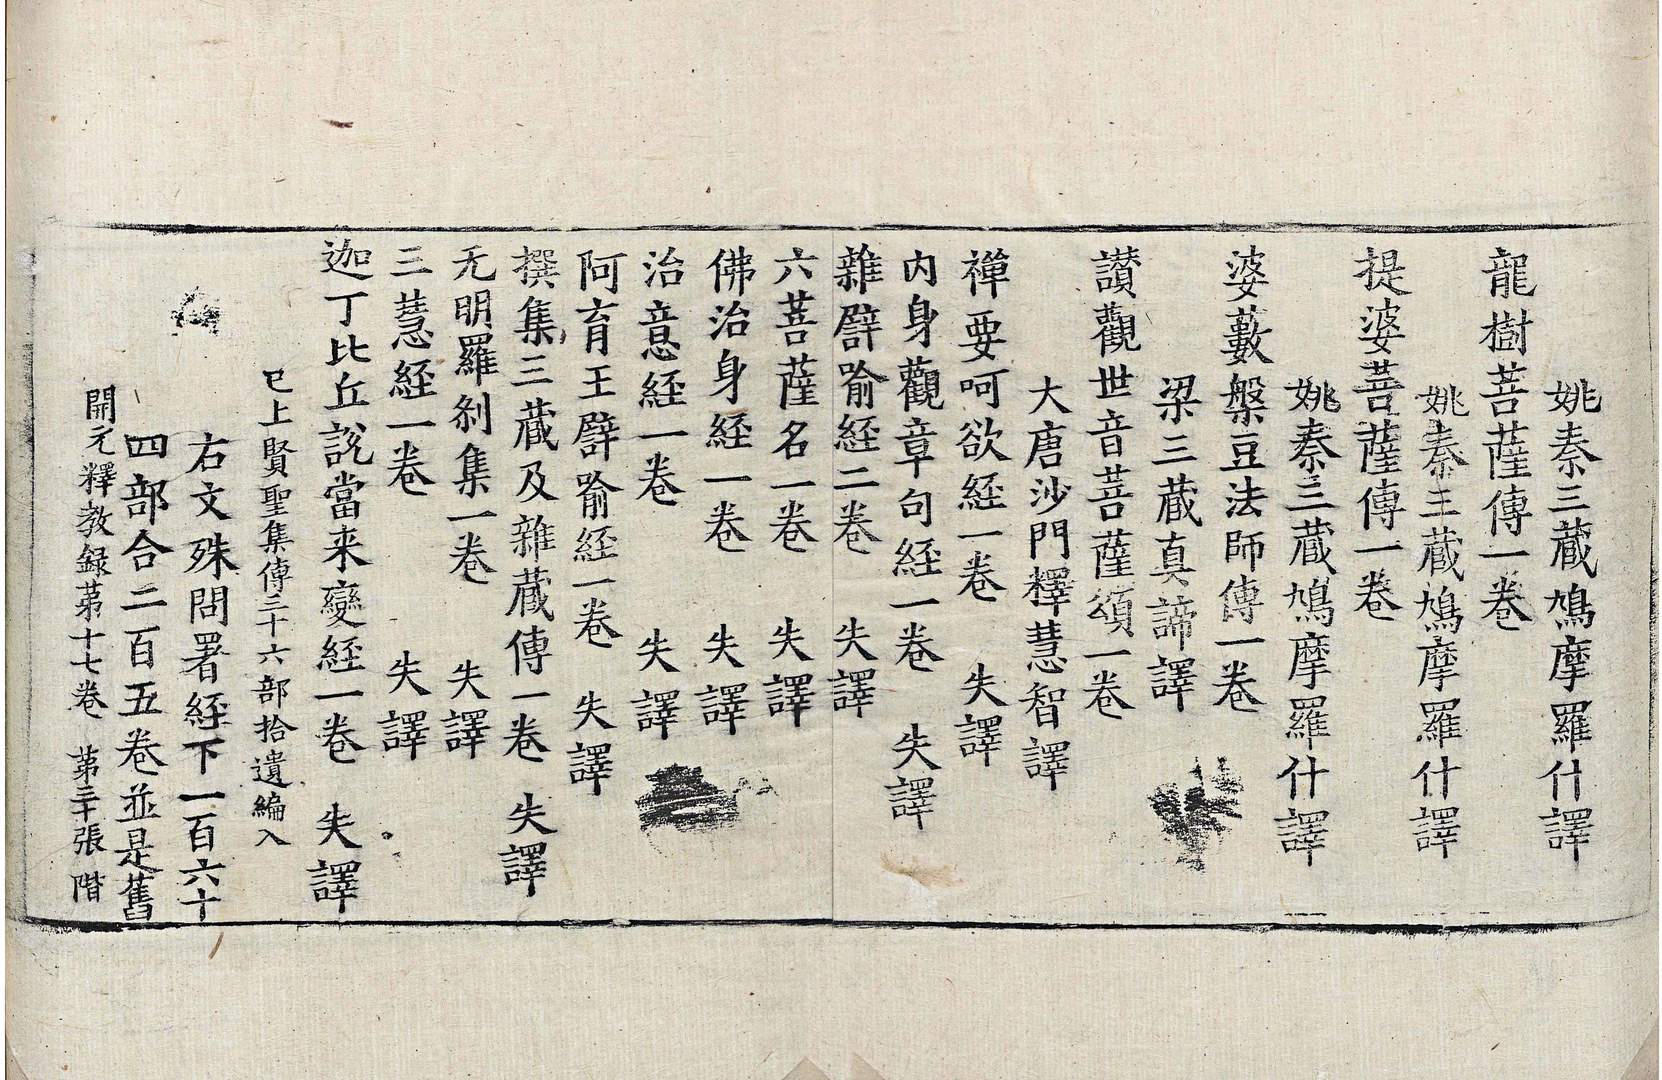 姚秦三藏鳩摩羅什譯
龍樹菩薩傳一卷
姚秦三藏鳩摩羅什譯
提婆菩薩傳一卷
姚秦三藏鳩摩羅什譯
婆藪槃豆法師傳一卷
梁三藏真諦譯
讃觀世音菩薩頌一卷
大唐沙門釋慧智譯
禪要呵欲経一卷 失譯
内身觀章句経一卷 失譯
雜譬喻経二卷 失譯
六菩薩名一卷 失譯
佛治身経一卷 失譯
治意経一卷 失譯
阿育王譬喻経一卷 失譯
撰集三藏及雜藏傳一卷 失譯
无明羅刹集一卷 失譯
三慧経一卷 失譯
迦丁比丘說當来變経一卷 失譯
已上賢聖集傳三十六部拾遺編入
右文殊問署経下一百六十
四部合二百五卷並是舊
開元釋教録苐十七卷 苐二十張 階